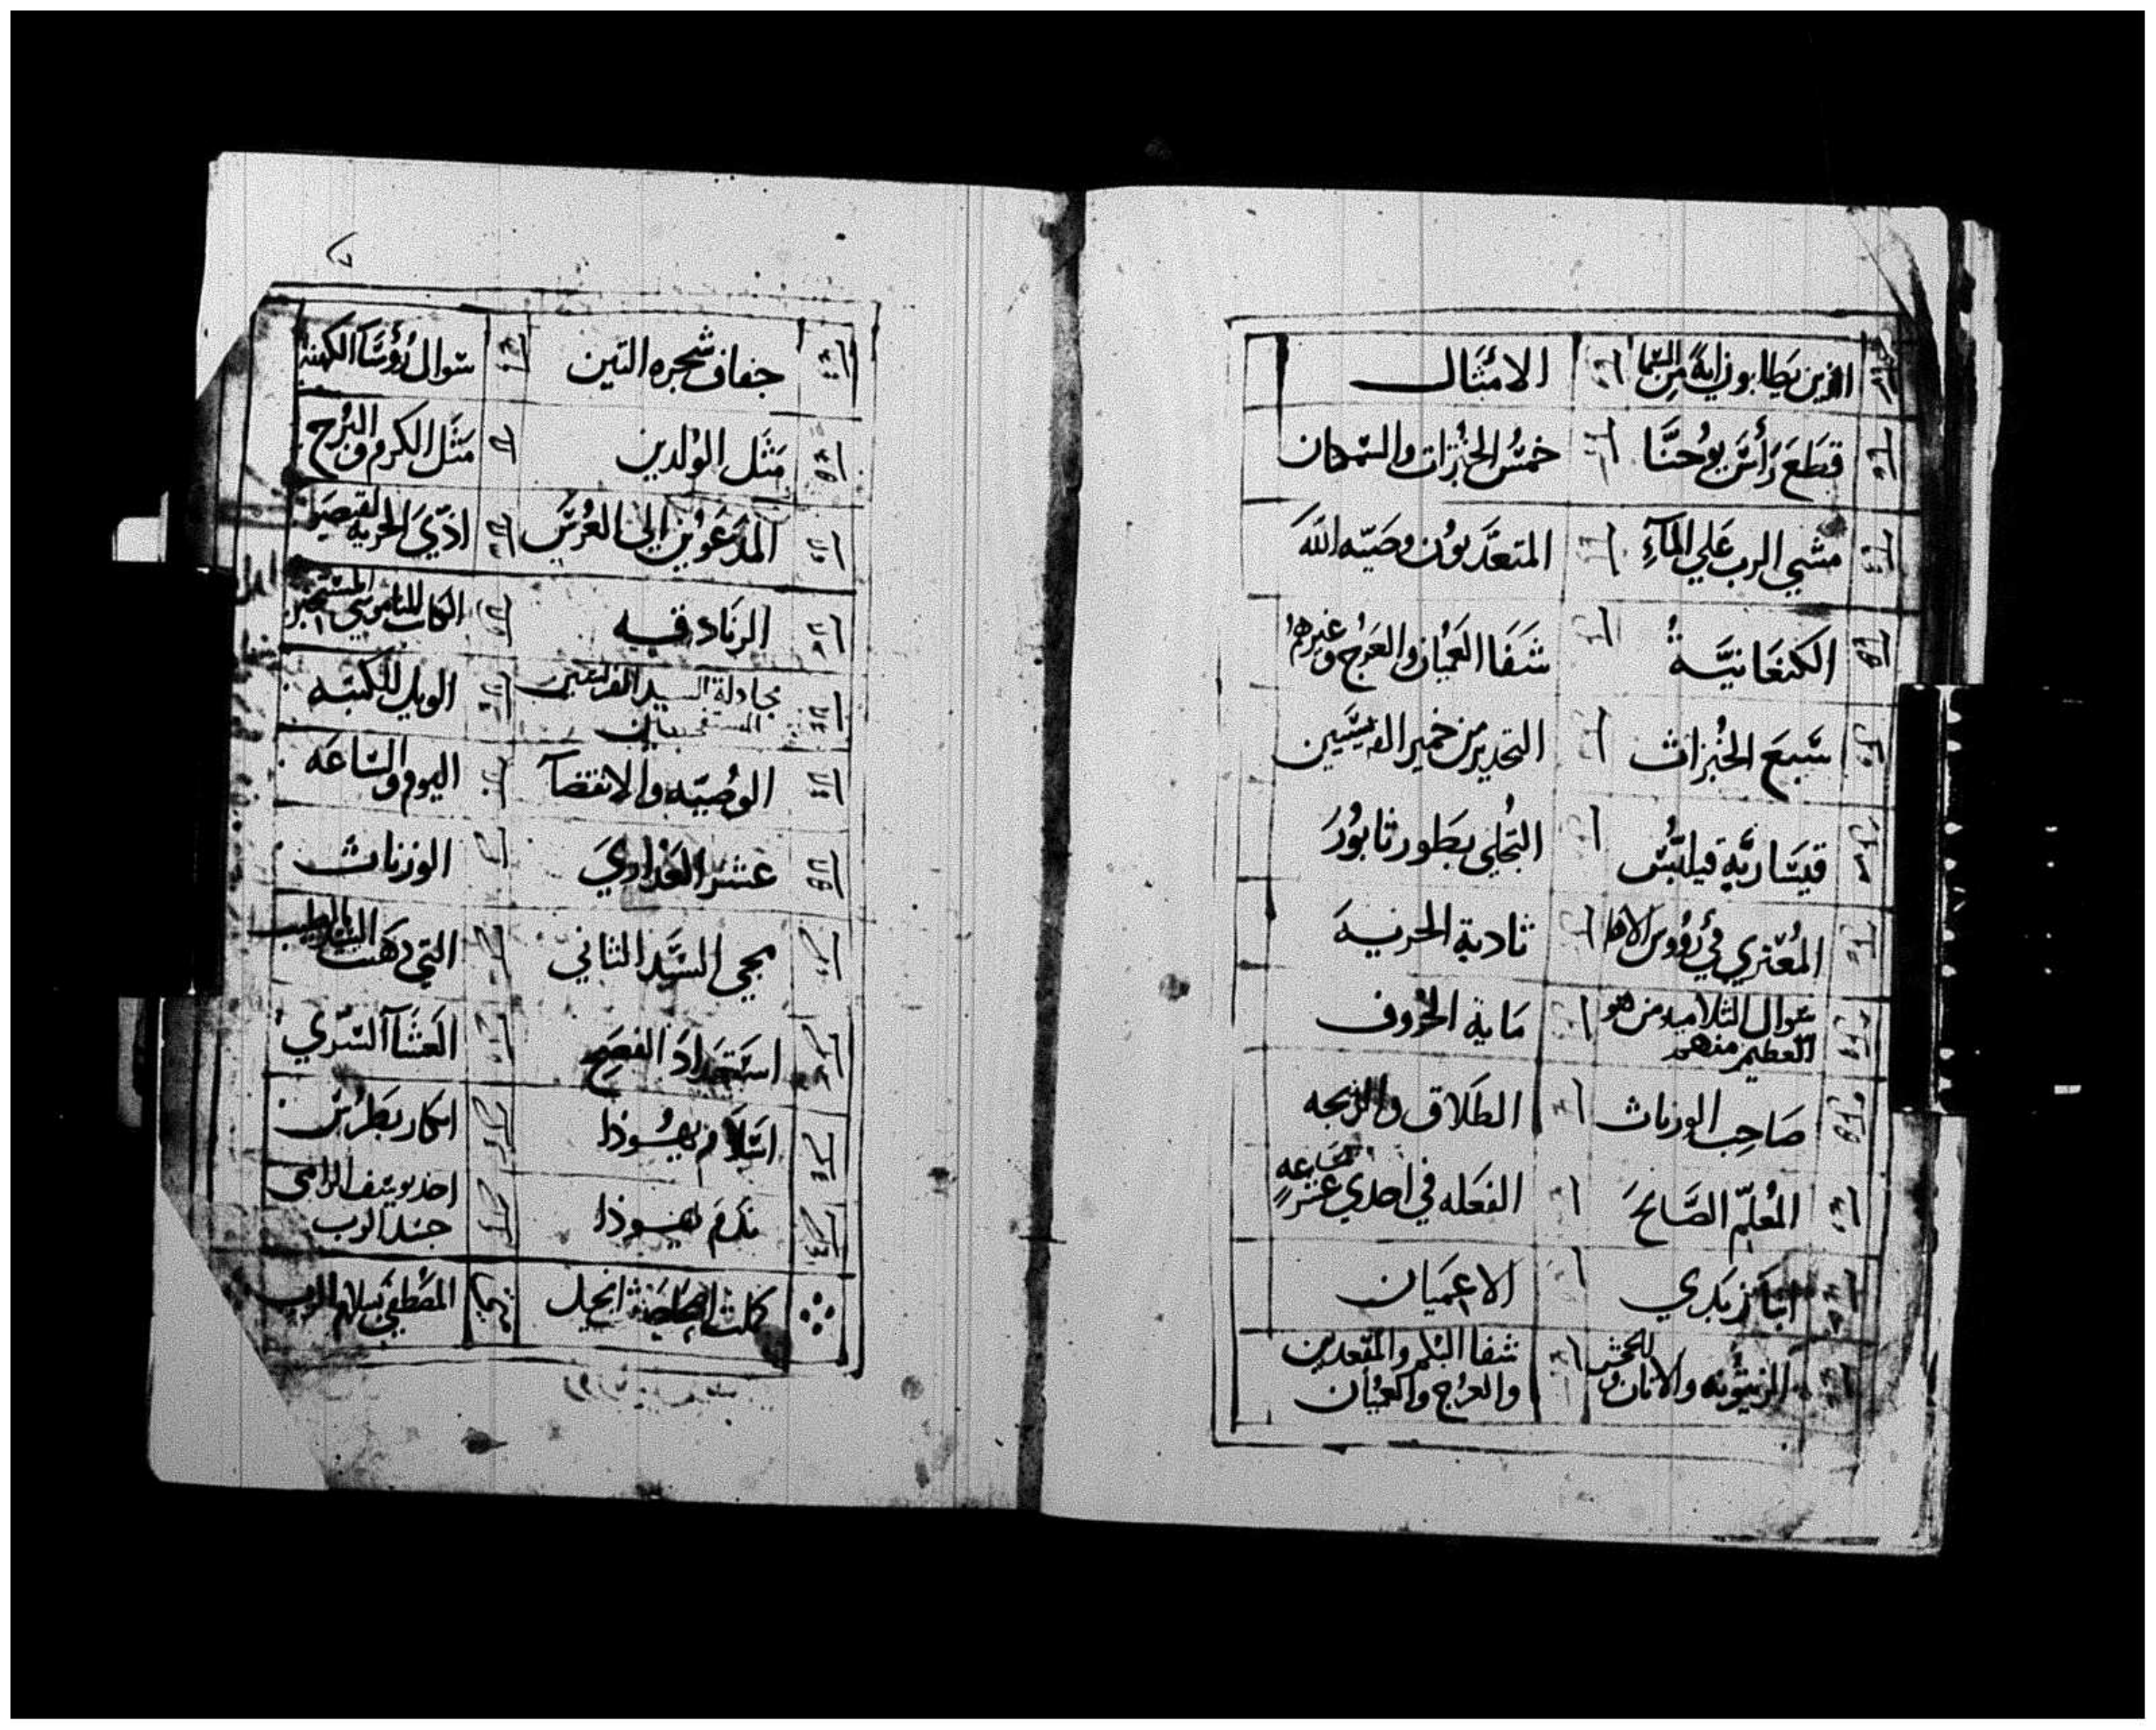 الذين يطلبون اية من السما الامثال
قطَعَ رَأسَ يوُحنَّا خمسُ الخبُزات والسمكتان
مشي الرب عَلي المآءِ المتعَدّيوُن وصَيّه اللَّه
الكنعَانيَّةُ شَفَا العُميان والعَرج وغيرهُم
سَبعَ الخبُزات التحدير من خمير الفريسَيين
قيسَاريَّة فيلبُّس التجُلي بطور ثابوُرَ
المُعتري في رؤوس الاهله ثادية الجزيَهَ
سوال التلاميد من هو العظيم منهم ماية الخرُوف
صَاحِب الوزنات الطَلاق والزيجه
المُعلّم الصَّالحَ الفعَله في احدي عشر ساعه
ابنَا زبَدي الاعميَان
الزيتُونه والاتان والجحش شفا البُكم والمقعدين
والعرُج والعميُان
جفاف شجره التين سَوال رُؤسَآ الكهنة
مَثَل الوُلدين مَثَل الكرم والبُرج
المَدعَوُين الي العُرسَ ادّيَ الجزيه لقيصَر
الزنَادقيه الكاتب الناموسي
مجادلة السيد الفريسيين الويل للكتبه
الوصُيّه والانقضآ اليوم والسَّاعَه
عشر العَدَاريَ الوزنات
مجي السَّيّد الثاني التي دهَنت
استعدادَ الفِصحِ العَشَآ السّري
اسَلام يهُوذا انكار بطرُس
ندَم يهُوذا اخذ يوسُف الرامي
جسد الرب
كملت انجيل المصطفي بسلام الرب